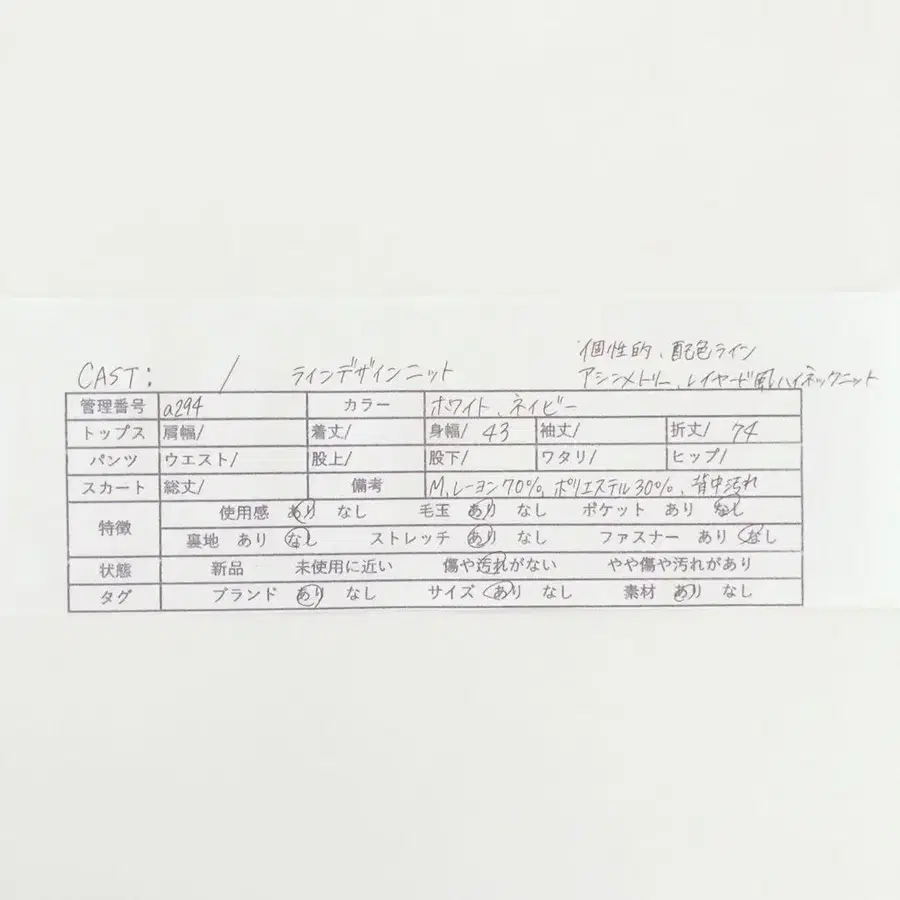 個性的、配色ライン
CAST: / ラインデザインニット アシンメトリー、レイヤード風ハイネックニット
管理番号 a294 カラー ホワイト、ネイビー
トップス 肩幅/ 着丈/ 身幅/ 43 袖丈/ 裄丈/ 74
パンツ ウエスト/ 股上/ 股下/ ワタリ/ ヒップ/
スカート 総丈/ 備考 M、レーヨン70%、ポリエステル30%、背中汚れ
特徴 使用感 あり なし 毛玉 あり なし ポケット あり なし
裏地 あり なし ストレッチ あり なし ファスナー あり なし
状態 新品 未使用に近い 傷や汚れがない やや傷や汚れがあり
タグ ブランド あり なし サイズ あり なし 素材 あり なし